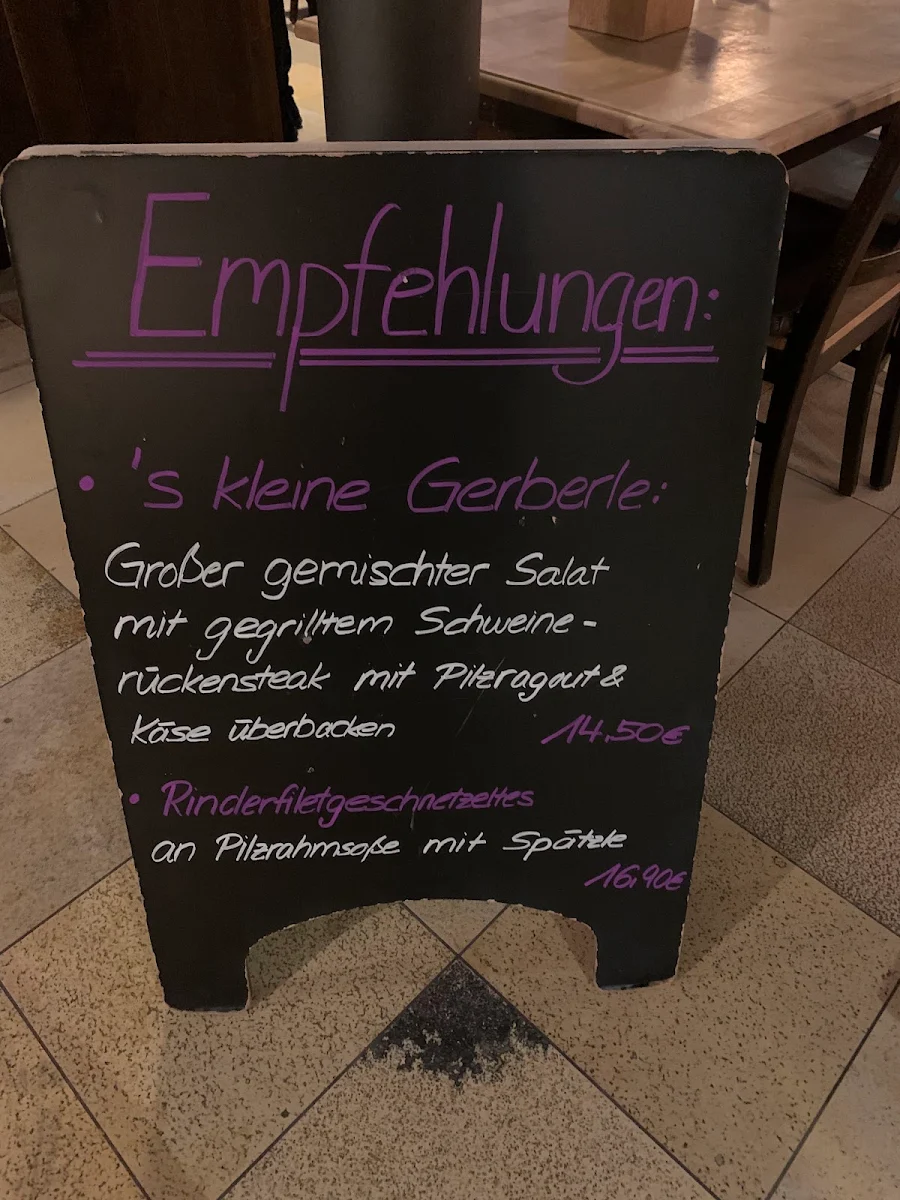 Empfehlungen:
• 's kleine Gerberle:
Großer gemischter Salat
mit gegrilltem Schweine-
rückensteak mit Pilzragout &
Käse überbacken 14,50€
• Rinderfiletgeschnetzeltes
an Pilzrahmsoße mit Spätzle
16,90€